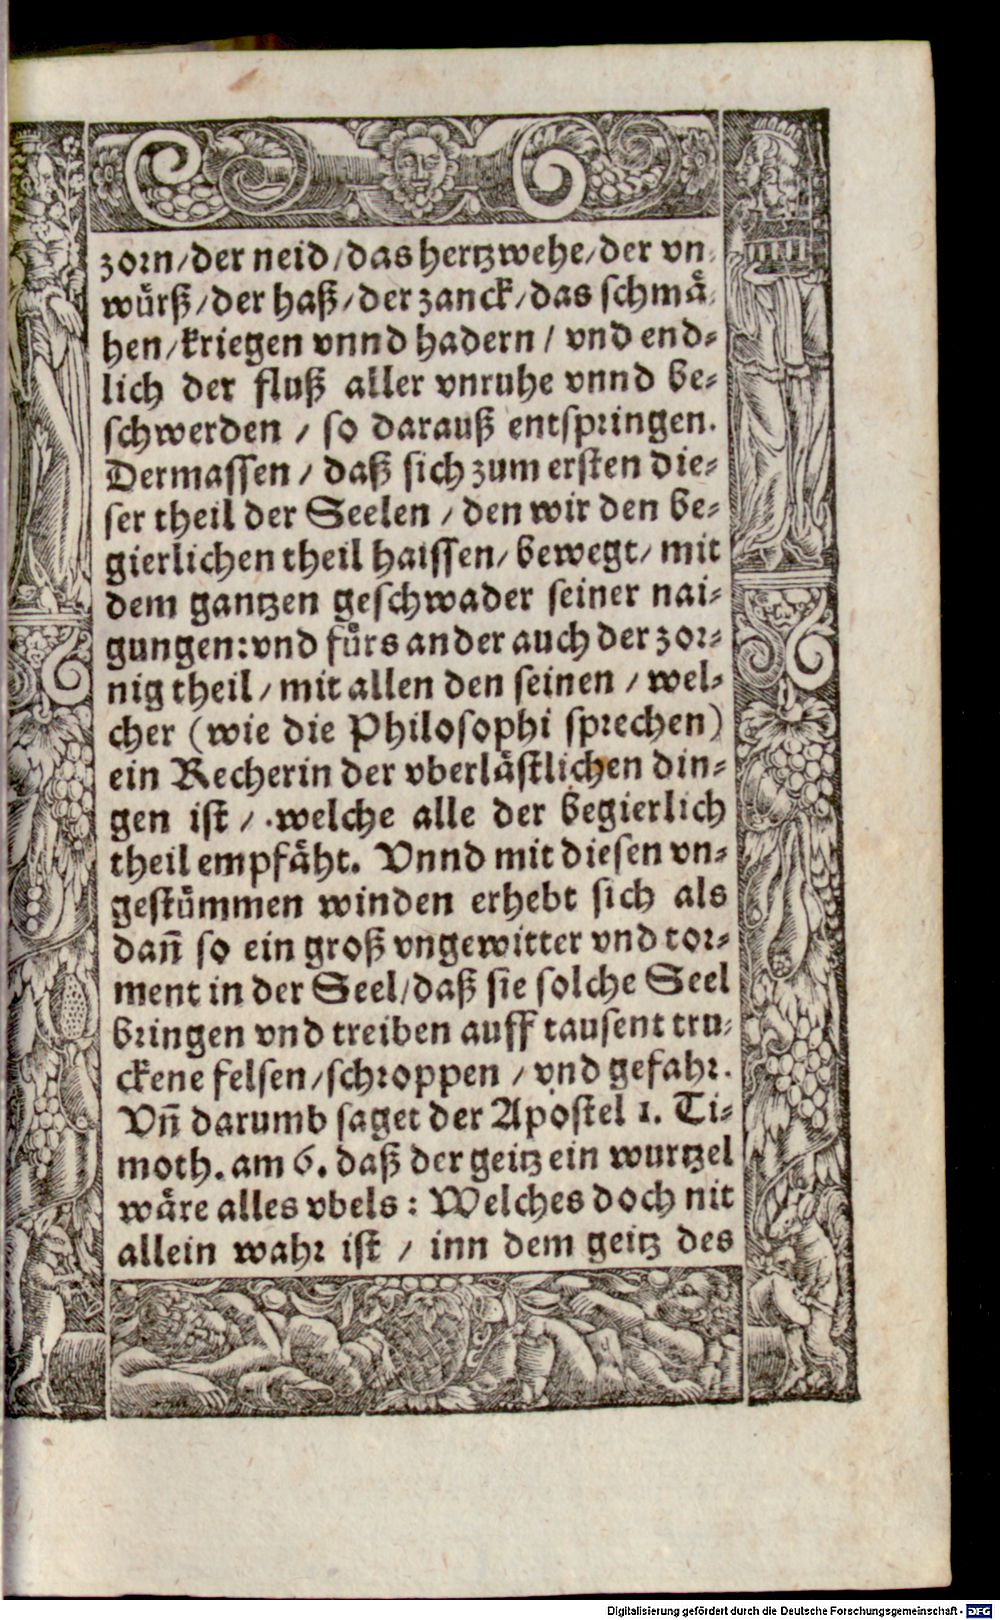 zorn/der neid/das hertzwehe/der vn-
wuͤrß/der haß/der zanck/das schmaͤ-
hen/kriegen vnnd hadern / vnd end-
lich der fluß aller vnruhe vnnd be-
schwerden / so darauß entspringen.
Dermassen / daß sich zum ersten die-
ser theil der Seelen / den wir den be-
gierlichen theil haissen/ bewegt/ mit
dem gantzen geschwader seiner nai-
gungen: vnd fuͤrs ander auch der zor-
nig theil / mit allen den seinen / wel-
cher (wie die Philosophi sprechen)
ein Recherin der vberlaͤstlichen din-
gen ist / welche alle der begierlich
theil empfaͤht. Vnnd mit diesen vn-
gestuͤmmen winden erhebt sich als
dañ so ein groß vngewitter vnd tor-
ment in der Seel/daß sie solche Seel
bringen vnd treiben auff tausent tru-
ckene felsen/schroppen / vnd gefahr.
Vñ darumb saget der Apostel 1. Ti-
moth. am 6. daß der geitz ein wurtzel
waͤre alles vbels: Welches doch nit
allein wahr ist / inn dem geitz des
Digitalisierung gefördert durch die Deutsche Forschungsgemeinschaft - DFG